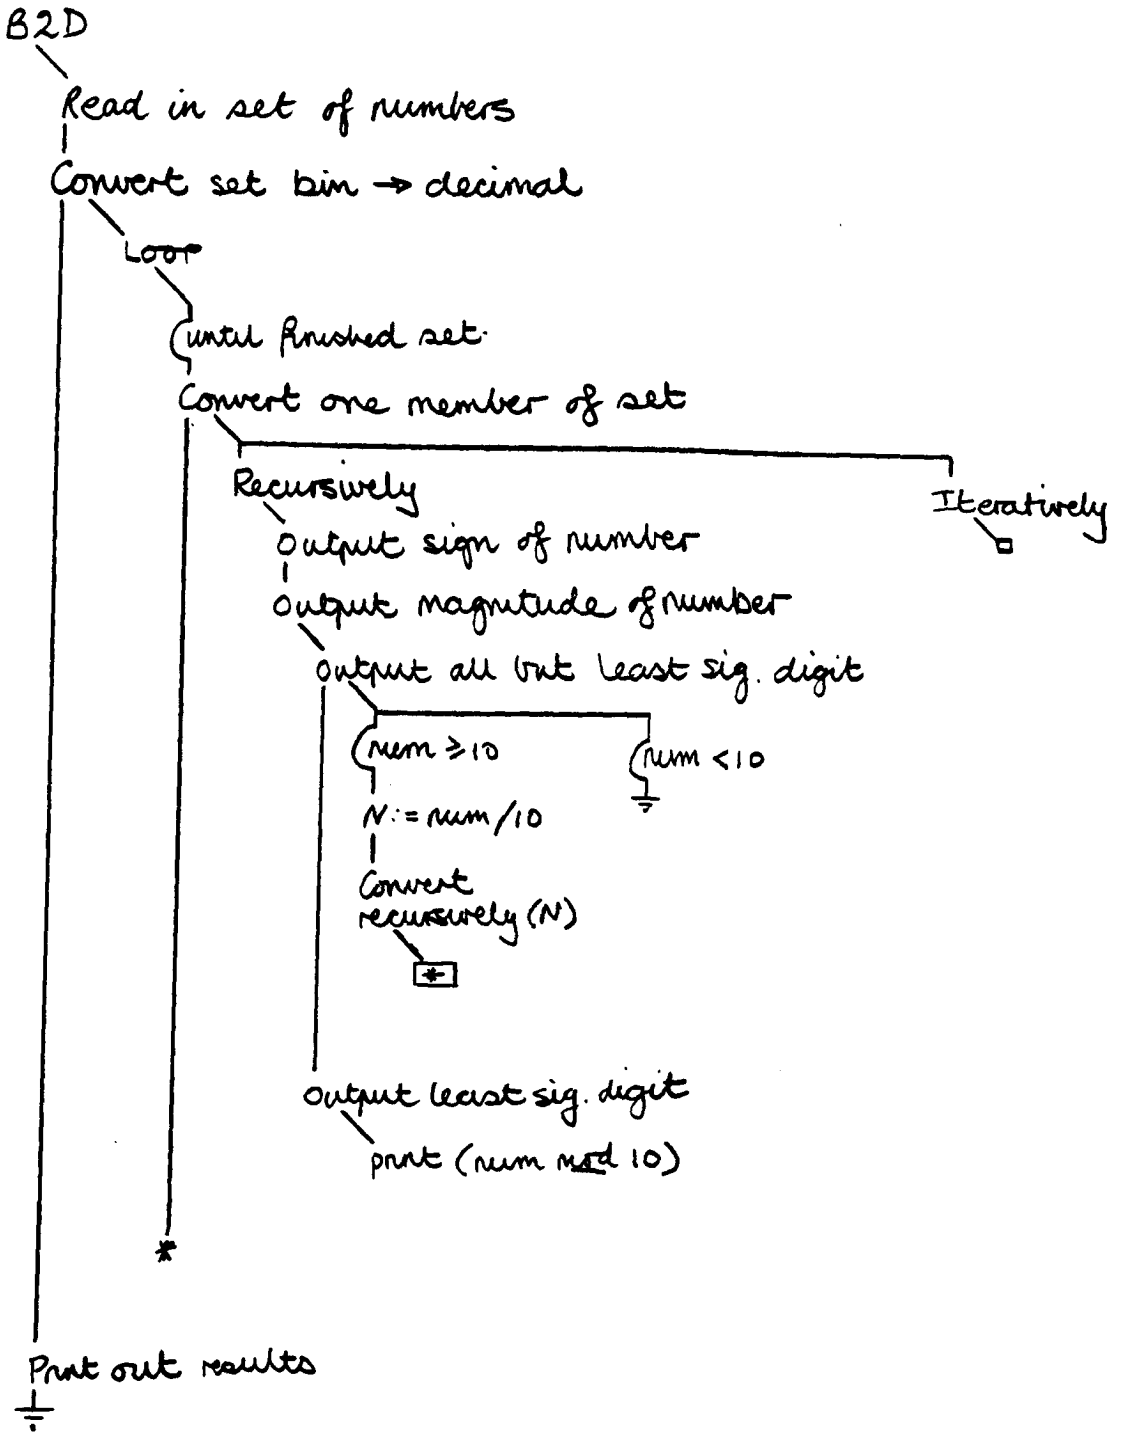 B2D
Read in set of numbers
Convert set bin → decimal
LOOP
until finished set.
Convert one member of set
Recursively
Iteratively
Output sign of number
Output magnitude of number
Output all but least sig. digit
num ≥ 10
num < 10
N := num/10
Convert
recursively (N)
*
Output least sig. digit
print (num mod 10)
*
Print out results